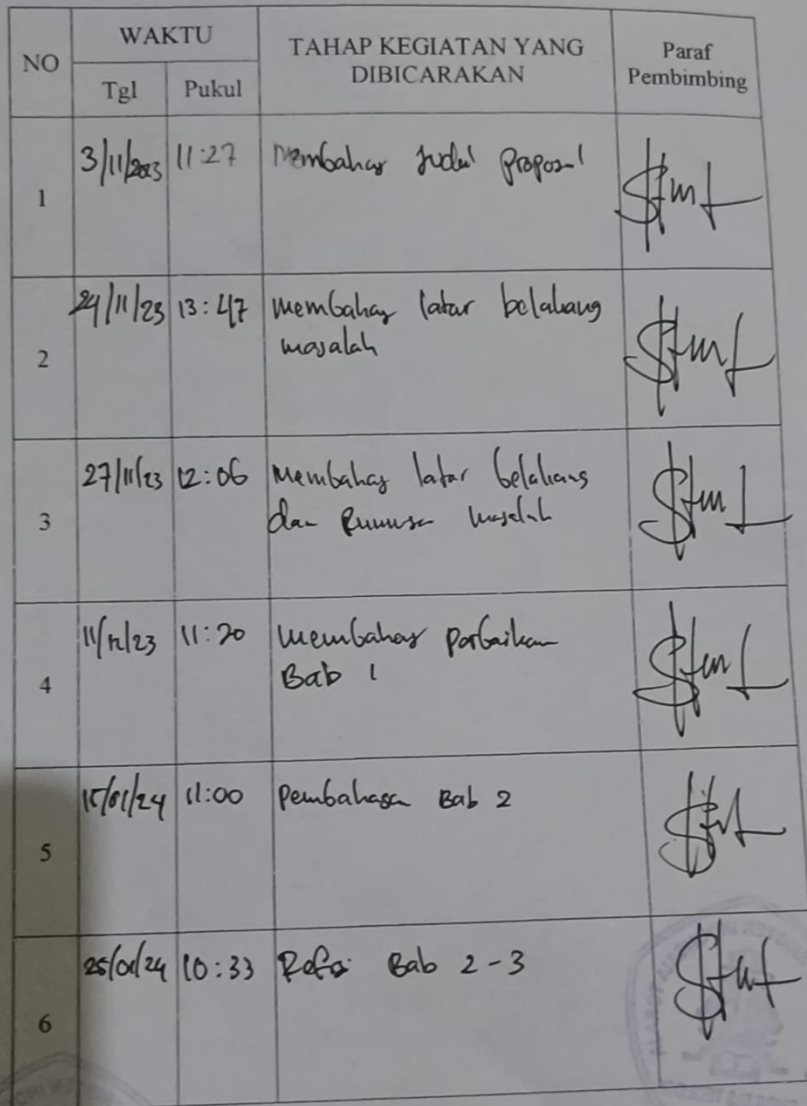 NO
WAKTU
Tgl
Pukul
TAHAP KEGIATAN YANG
DIBICARAKAN
Paraf
Pembimbing
1
3/11/2023
11:27
Membahas Judul Proposal
2
24/11/23
13:47
membahas latar belakang
masalah
3
27/11/23
12:06
membahas latar belakang
dan Rumusan masalah
4
11/12/23
11:20
membahas perbaikan
Bab 1
5
15/01/24
11:00
Pembahasan Bab 2
6
25/01/24
10:33
Bab 2-3